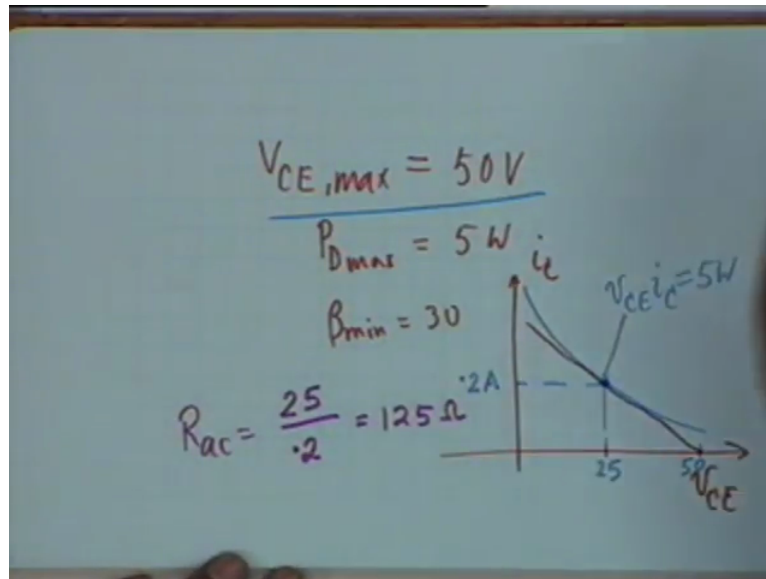 V_CE,max = 50V
P_Dmax = 5W
β_min = 30
R_ac = 25/.2 = 125Ω
i_c
v_CE i_C = 5W
.2A
25
50
V_CE